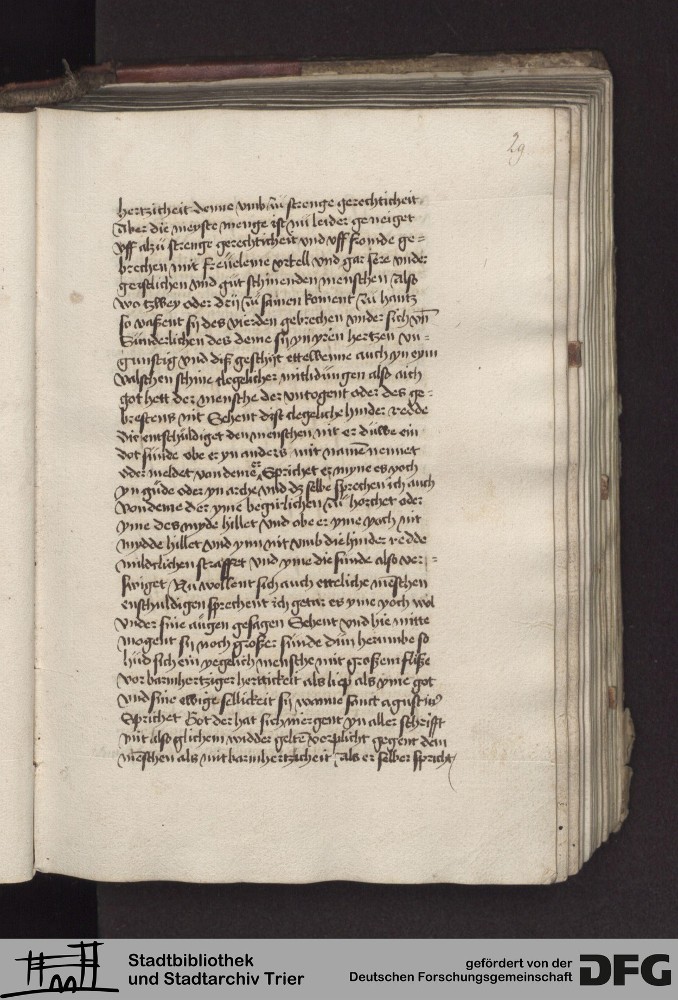 29
hertzicheit denne vmb zů strenge gerechticheit
Aber die meyste menge ist nů leider geneiget
vff alzů strenge gerechticheit vnd vff fromde ge=
brechen mit freueleme vrtell vnd gar sere vnder
geistlichen vnd gůt schinenden menschen Also
wo tzwey oder drÿ zů samen koment zů hantz
so vaßent sÿ des vierden gebrechen vnder sich vñ
Sůnderlichen des deme sÿ yn yren hertzen vn=
gunstig vnd diß geschÿt ettewenne auch yn eym
valschen schine clegelicher mitlidůngen also ach
got hett der mensche der vntogent oder des ge=
brestens nit Sehent dist clegeliche hinder redde
die entschůldiget den menschen nit er důwe ein
dot sůnde obe er yn anders mit namē nennet
oder meldet von deme er Sprichet er myne es yoch
yn gůde oder yn arche vnd dz selbe sprechen ich auch
von deme der yme begirlichen zů horchet oder
yme des myde hillet vnd obe er yme yoch nit
mydde hillet vnd ynn nit vmb die hinder redde
mildclichen straffet vnd yme die sunde also ver=
swiget Nu wollent sich auch etteliche meschen
enschuldigen sprechent ich getar es yme yoch wol
vnder sine augen gesagen Sehent vnd hie mitte
mogent sÿ noch großer sunde důn herumbe so
hůd sich ein yegelich mensche mit großem fliße
vor barmhertziger hertickeit als liep als yme got
vnd sine ewige sellickeit sÿ wanne sanct agustin9
Sprichet Got der hat sich niergent yn aller schrifft
mit also glichem widder geltē verplicht gegent dem
meschen als mit barmhertzicheit / als er selber spricht
Stadtbibliothek
und Stadtarchiv Trier
gefördert von der
Deutschen Forschungsgemeinschaft
DFG